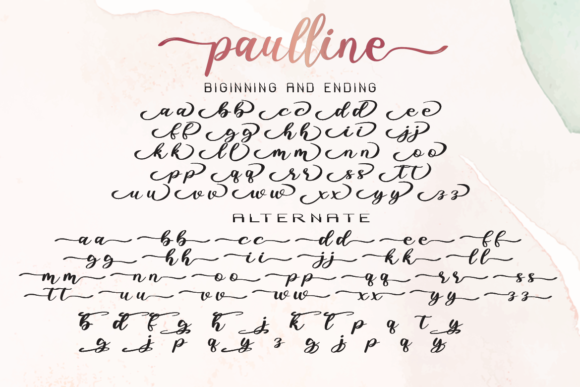 paulline
BIGINNING AND ENDING
aa bb cc dd ee
ff gg hh ii jj
kk ll mm nn oo
pp qq rr ss tt
uu vv ww xx yy zz
ALTERNATE
aa bb cc dd ee ff
gg hh ii jj kk ll
mm nn oo pp qq rr ss
tt uu vv ww xx yy zz
b d f g h j k l p q t y
g j p q y z g j p q y